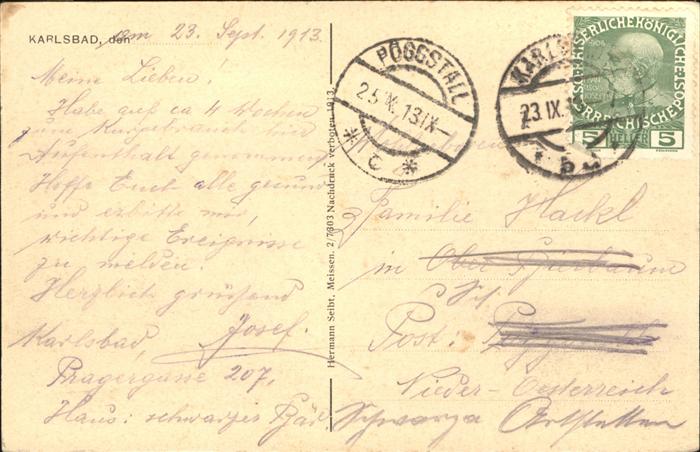 KARLSBAD, den am 23. Sept. 1913.
Meine Lieben!
Habe auf ca 4 Wochen
zum Kurgebrauch hier
Aufenthalt genommen.
Hoffe Euch alle gesund
und erbitte mir,
wichtige Ereignisse
zu melden.
Herzlich grüßend
Josef.
Karlsbad,
Pragergasse 207,
Haus: schwarzer Bär.
Hermann Seibt, Meissen, 2/7303 Nachdruck verboten 1913.
PÖGGSTALL
25 IX. 13 IX–
* c *
KARLS
23. IX. 1
5
KAISERLICHE KÖNIGLICHE
ÖSTERREICHISCHE POST
5 HELLER 5
Familie Hackl
in Ober
Post:
Nieder-Oesterreich
Schwarza Artstetten